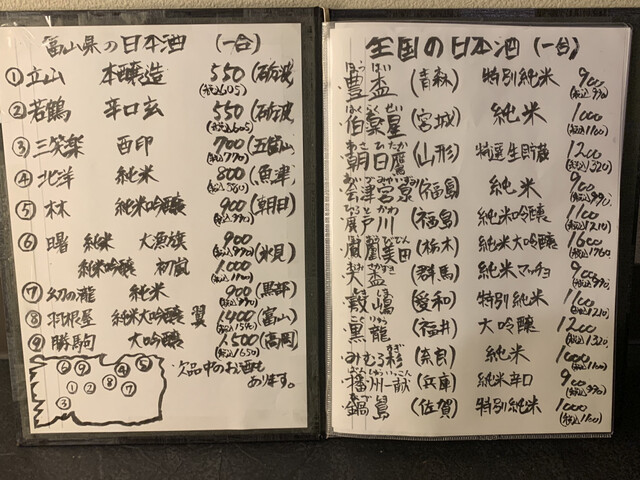 富山県の日本酒 (一合)
① 立山 本醸造 550 (税込605) (砺波)
② 若鶴 辛口玄 550 (税込605) (砺波)
③ 三笑楽 西印 700 (税込770) (五箇山)
④ 北洋 純米 800 (税込880) (魚津)
⑤ 林 純米吟醸 900 (税込990) (朝日)
⑥ 曙 純米 大漁旗 900 (税込990) (氷見)
純米吟醸 初嵐 1,000 (税込1100)
⑦ 幻の瀧 純米 900 (税込990) (黒部)
⑧ 羽根屋 純米大吟醸 翼 1,400 (税込1540) (富山)
⑨ 勝駒 大吟醸 1,500 (税込1650) (高岡)
⑥ ⑨ ④ ⑤
① ② ⑧ ⑦
③
・欠品中のお酒も
あります。
全国の日本酒 (一合)
ほう はい
豊盃 (青森) 特別純米 900 (税込990)
はくらくせい
伯楽星 (宮城) 純米 1000 (税込1100)
あさひたか
朝日鷹 (山形) 特選生貯蔵 1200 (税込1320)
あいづみやいずみ
会津宮泉 (福島) 純米 900 (税込990)
ひろとがわ
廣戸川 (福島) 純米吟醸 1100 (税込1210)
鳳凰美田 (栃木) 純米大吟醸 1600 (税込1760)
大盃 (群馬) 純米マッチョ 900 (税込990)
敷嶋 (愛知) 特別純米 1100 (税込1210)
こくりゅう
黒龍 (福井) 大吟醸 1200 (税込1320)
みむろ杉 (奈良) 純米 1000 (税込1100)
播州一献 (兵庫) 純米辛口 900 (税込990)
なべしま
鍋島 (佐賀) 特別純米 1000 (税込1100)